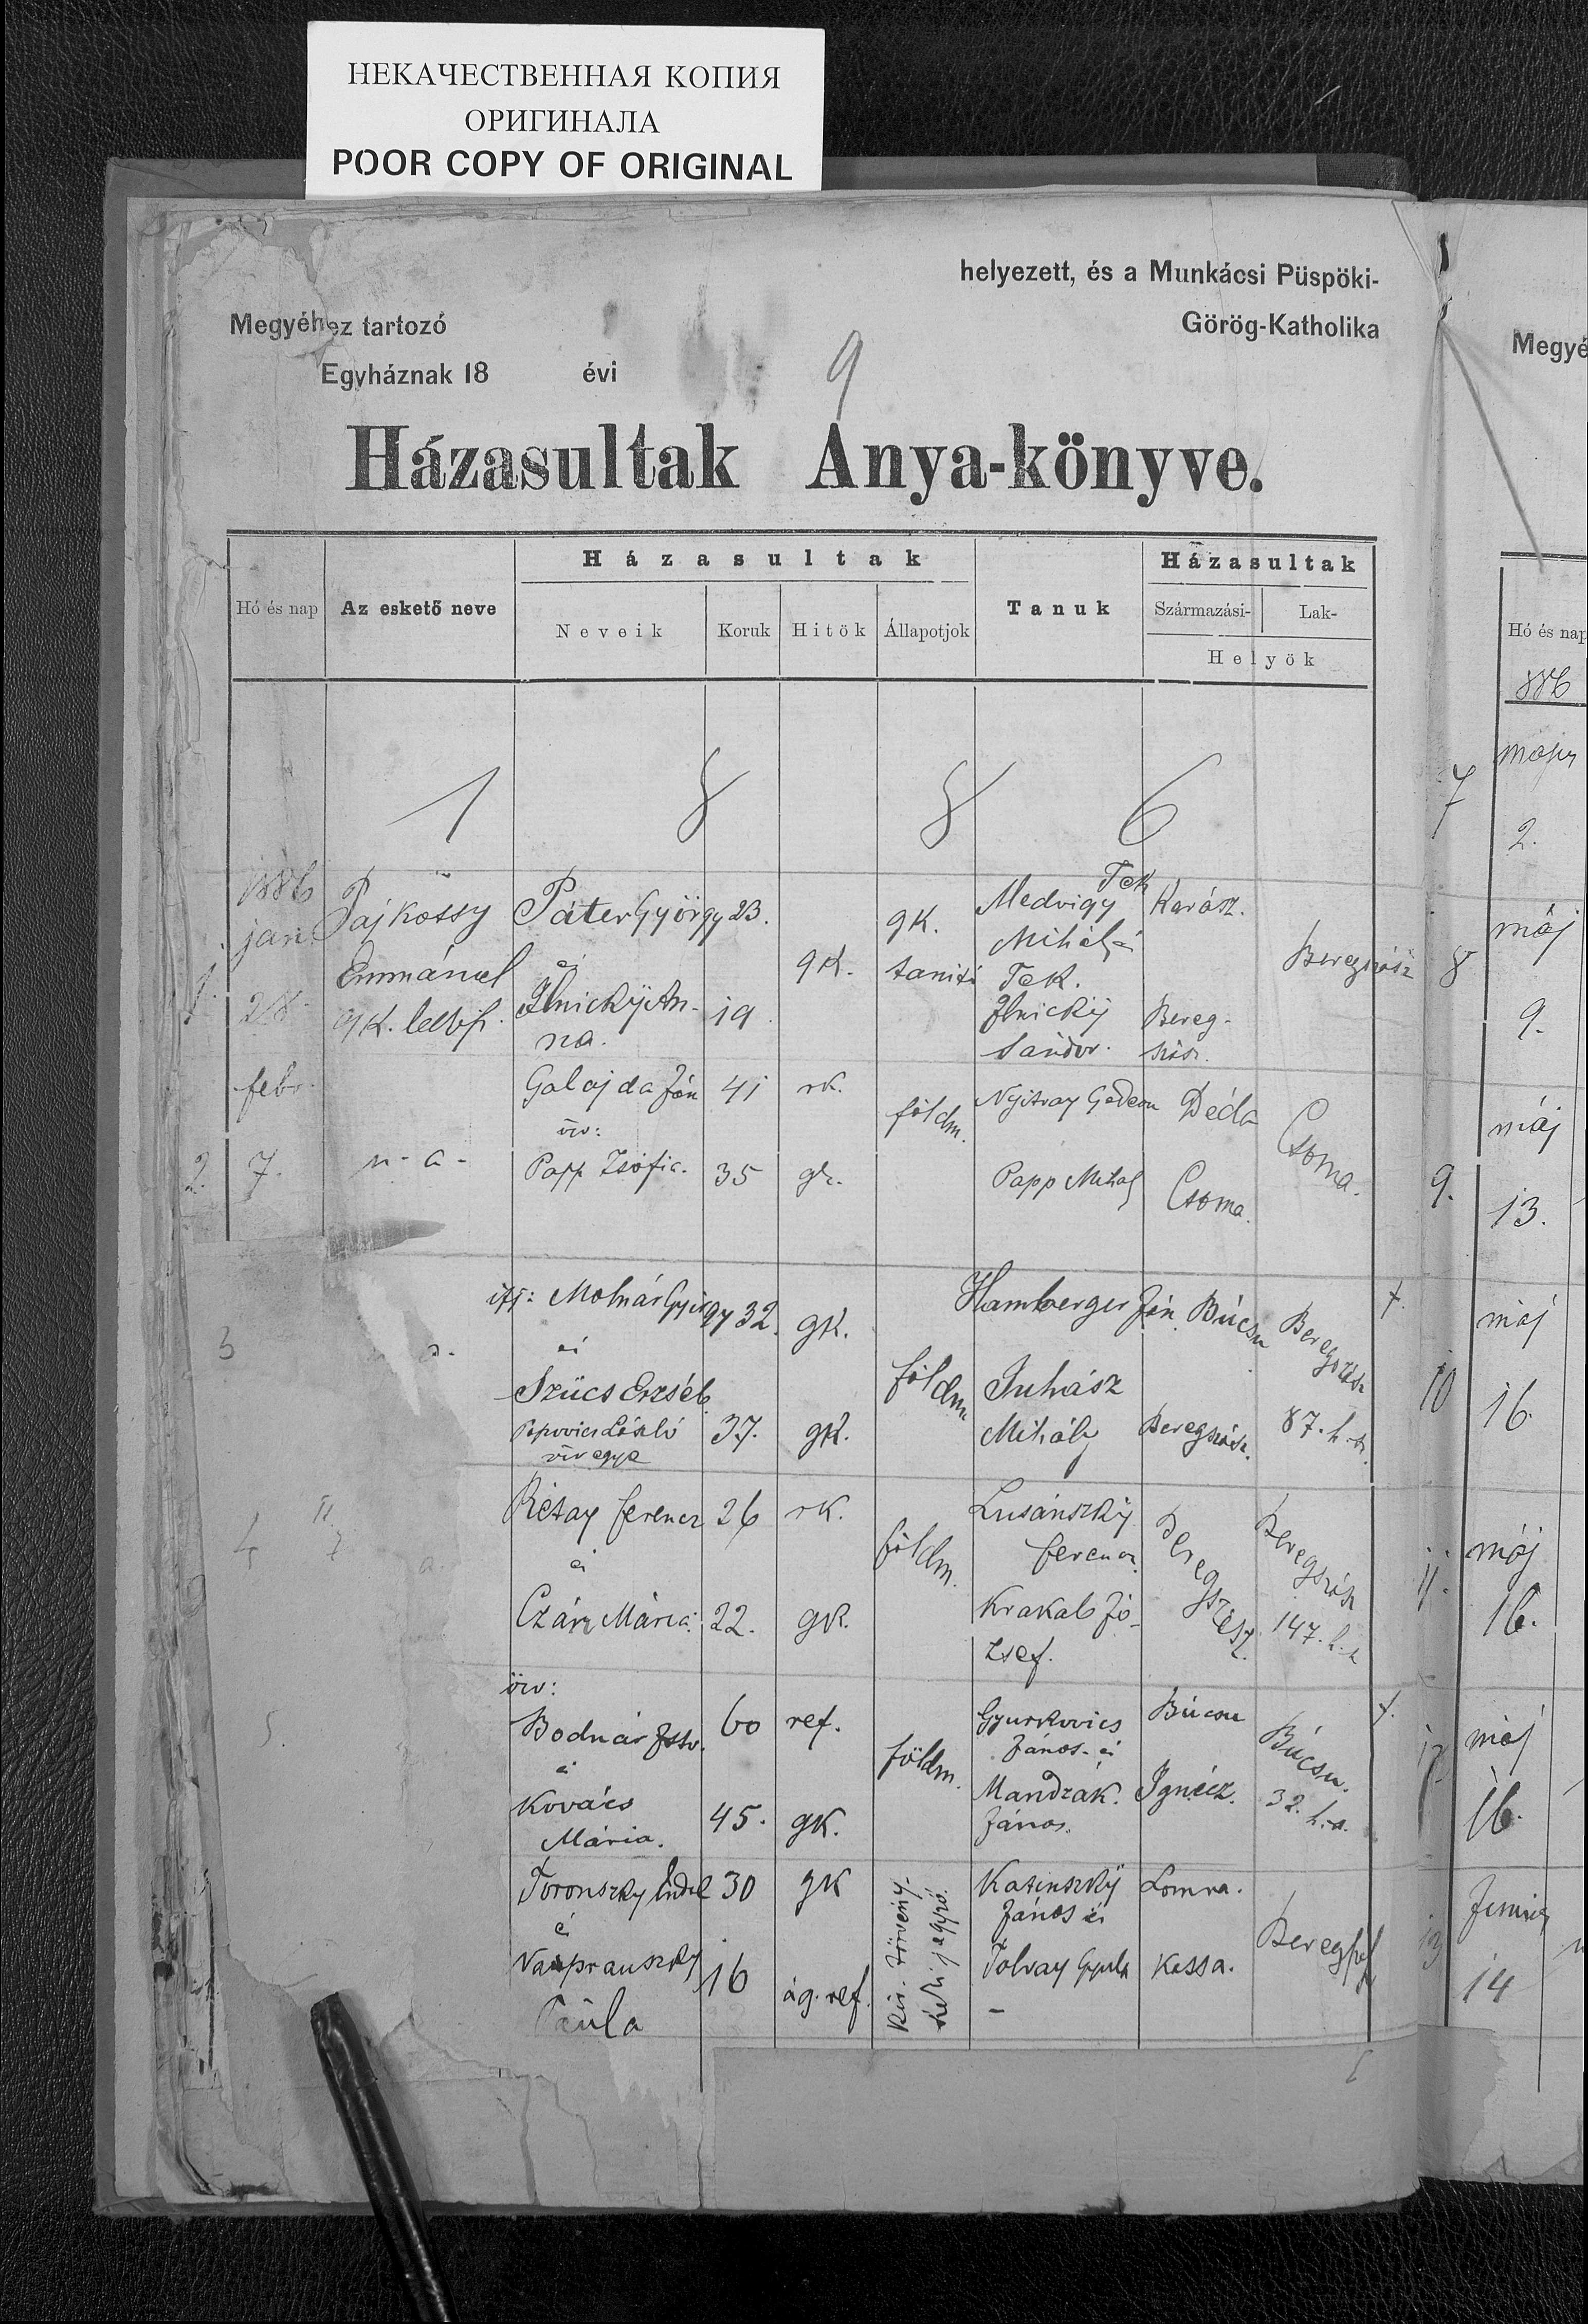 НЕКАЧЕСТВЕННАЯ КОПИЯ
ОРИГИНАЛА
POOR COPY OF ORIGINAL
helyezett, és a Munkácsi Püspöki-
Megyéhez tartozó
Görög-Katholika
Egyháznak 18 évi
9
Házasultak Anya-könyve.
Házasultak
Házasultak
Hó és nap
Az eskető neve
Neveik
Koruk
Hitök
Állapotjok
Tanuk
Származási-
Lak-
Helyök
1 8 8 6
1886
jan
28
1.
Pajkossy
Emmánuel
gk.
Páter György 23.
és
Ilniczky An- 19
na.
gk.
gk.
tanító
Tek
Medvigy
Mihály é
Tek.
Ilniczky
Sándor.
Karász.
Bereg-
szász.
Beregszász
febr.
2. 7.
u-a-
Galajda Ján 41 rk.
öv:
Papp Zsófia. 35 gk.
földm.
Nyitray Gedeon
Papp Mihály
Déda
Csoma.
Csoma.
3
ifj: Molnár György 32. gk.
és
Szücs Erzséb.
Popovics László 37. gk.
özvegye
földm
Hamberger Ján.
Juhász
Mihály
Búcsu
Beregszász.
Beregszász
87. h. sz.
4
Rétay Ferencz 26 rk.
és
Czár Mária. 22. gk.
földm.
Lusánszky
Ferencz.
Krakab Jó-
zsef.
Beregszász.
Beregszász
147. h. sz
5.
özv:
Bodnár Istv. 60 ref.
és
Kovács 45. gk.
Mária.
földm.
Gyurkovics
János. és
Mandzák.
János.
Búcsu
Ignécz.
Búcsu.
32. h. sz.
Toronszky Endre 30 gk
é
16 ág. ref.
Paula
Kir. törvény-
széki jegyző.
Kasinszky
János és
Tolvay Gyula
Lomna.
Kassa.
Megyé
Hó és nap
886
7
2.
8 máj
9.
9. máj
13.
10 máj
16
11. máj
16.
12 máj
16.
13 Junius
14